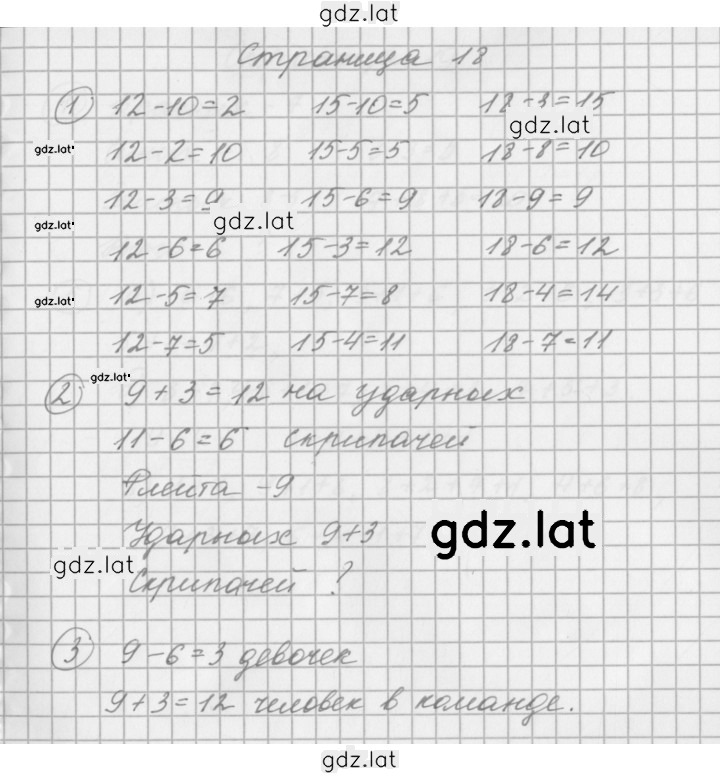 gdz.lat
Страница 18
1 12-10=2 15-10=5 18-3=15
gdz.lat
gdz.lat 12-2=10 15-5=5 18-8=10
12-3=9 15-6=9 18-9=9
gdz.lat gdz.lat
12-6=6 15-3=12 18-6=12
gdz.lat 12-5=7 15-7=8 18-4=14
12-7=5 15-4=11 18-7=11
gdz.lat
2 9+3=12 на ударных
11-6=6 скрипачей
Флейта -9
Ударных 9+3
gdz.lat
gdz.lat
Скрипачей ?
3 9-6=3 девочек
9+3=12 человек в команде.
gdz.lat